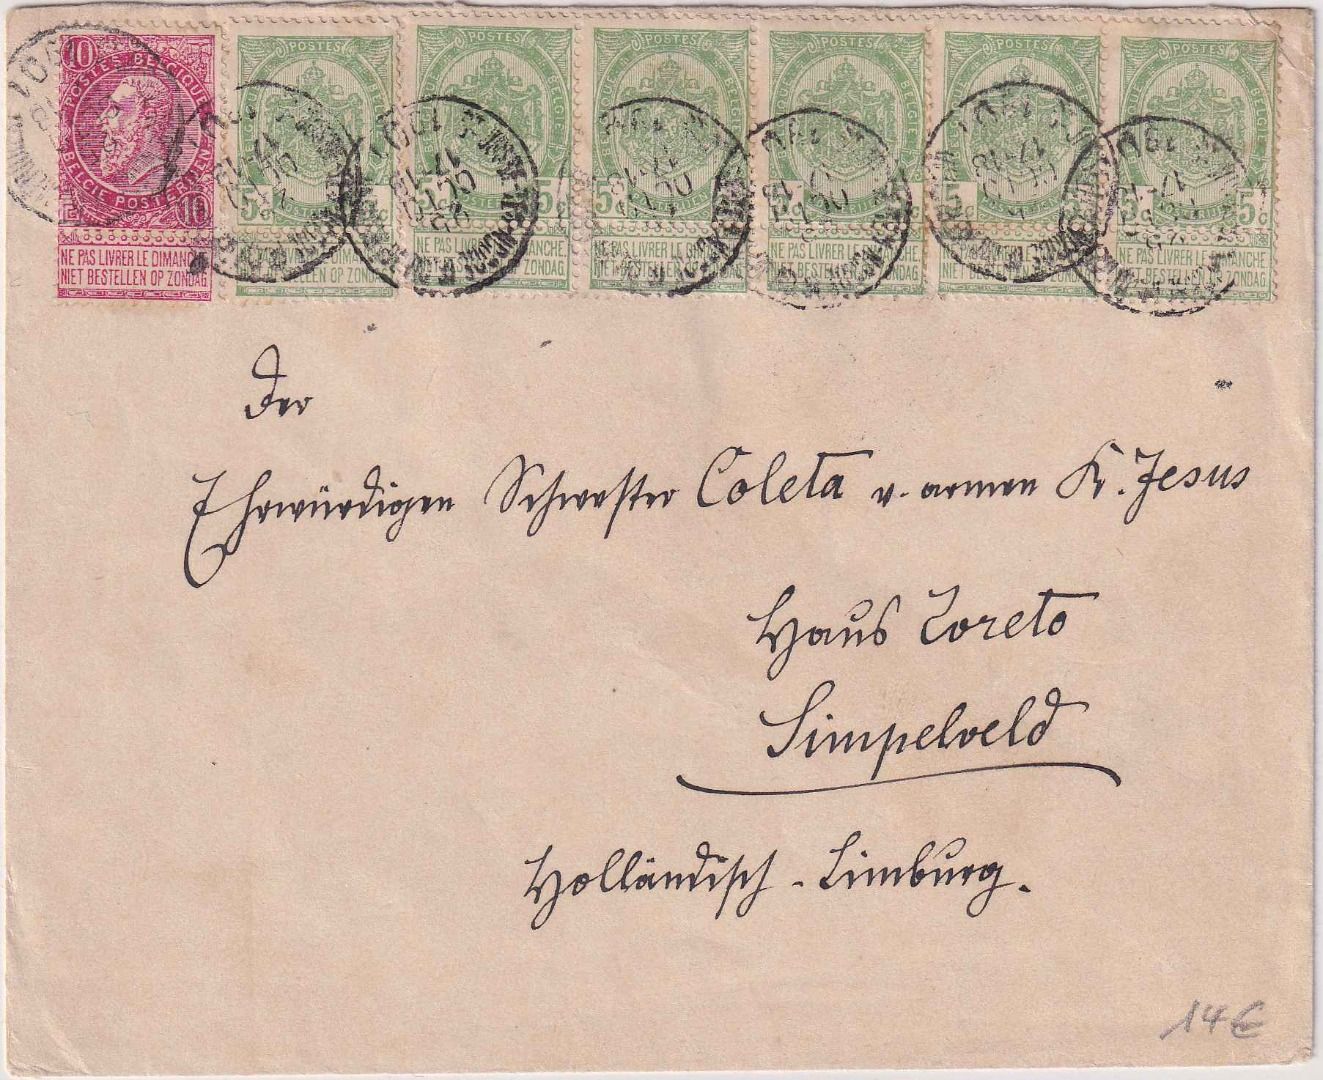 10
POSTES BELGIQUE
BELGIE POSTERIJEN
10
NE PAS LIVRER LE DIMANCHE
NIET BESTELLEN OP ZONDAG
POSTES
5 c
NE PAS LIVRER LE DIMANCHE
NIET BESTELLEN OP ZONDAG
POSTES
5 c
NE PAS LIVRER LE DIMANCHE
NIET BESTELLEN OP ZONDAG
POSTES
5 c
NE PAS LIVRER LE DIMANCHE
NIET BESTELLEN OP ZONDAG
POSTES
5 c
NE PAS LIVRER LE DIMANCHE
NIET BESTELLEN OP ZONDAG
POSTES
5 c
NE PAS LIVRER LE DIMANCHE
NIET BESTELLEN OP ZONDAG
POSTES
5 c
NE PAS LIVRER LE DIMANCHE
NIET BESTELLEN OP ZONDAG
1901
17-18
OCT
Der
Ehrwürdigen Schwester Coleta v. armen K. Jesus
Haus Loreto
Simpelveld
Holländisch - Limburg.
14 €